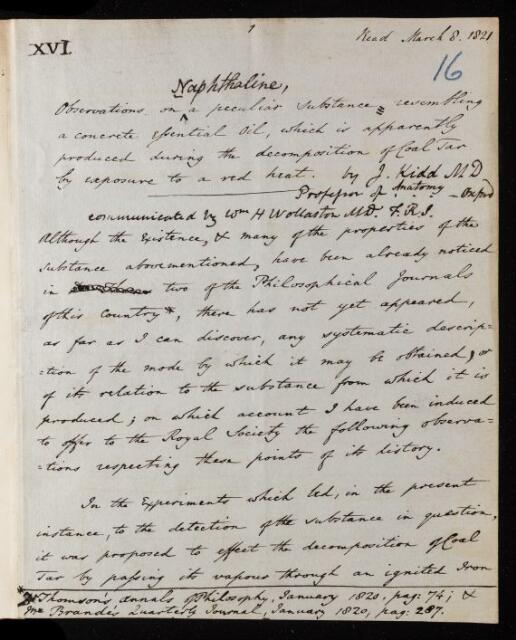 1
Read March 8. 1821
XVI.
16
Naphthaline,
Observations on ^ a peculiar substance resembling
a concrete Essential Oil, which is apparently
produced during the decomposition of Coal Tar
by exposure to a red heat. by J. Kidd MD
Professor of Anatomy - Oxford
communicated by Wm H Wollaston MD. F.R.S.
Although the Existence, & many of the properties of the
substance abovementioned, have been already noticed
in two of the Philosophical Journals
of this Country*, there has not yet appeared,
as far as I can discover, any systematic descrip=
=ction of the mode by which it may be obtained, or
of its relation to the substance from which it is
produced; on which account I have been induced
to offer to the Royal Society the following observa=
=tions respecting these points of its history.
In the Experiments which led, in the present
instance, to the detection of the substance in question,
it was proposed to effect the decomposition of Coal
Tar by passing its vapour through an ignited Iron
*Dr Thomson's Annals of Philosophy, January 1820, pag: 74; &
Mr Brande's Quarterly Journal, January 1820, pag: 287.